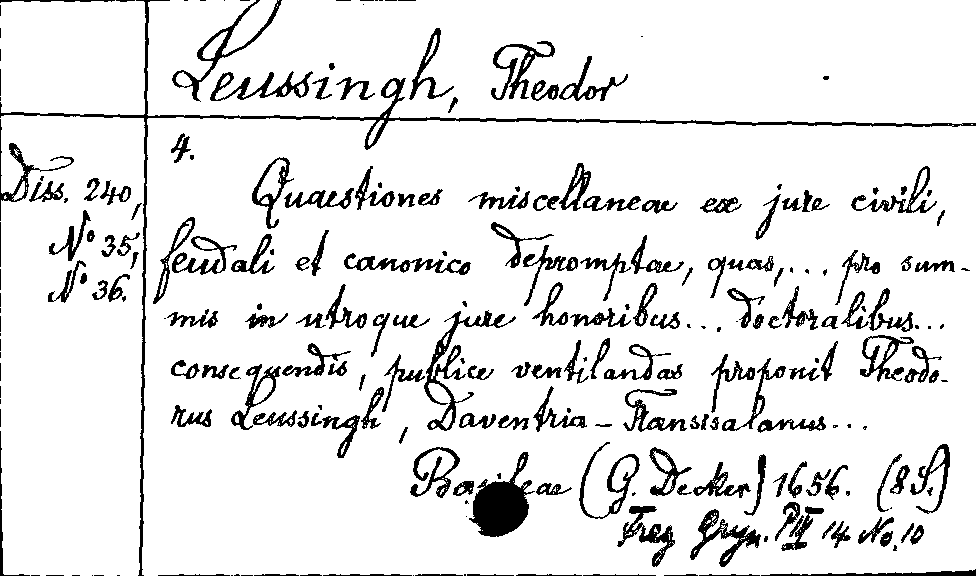 Leussingh, Theodor
4.
Diss. 240,
No 35,
No 36.
Quaestiones miscellaneae ex jure civili,
feudali et canonico depromptae, quas,... pro sum-
mis in utroque jure honoribus... doctoralibus...
consequendis, publice ventilandas proponit Theodo-
rus Leussingh, Daventria-Transisalanus...
Basileae (G. Decker) 1656. (8 S.)
Frey Gryn. 14 No. 10